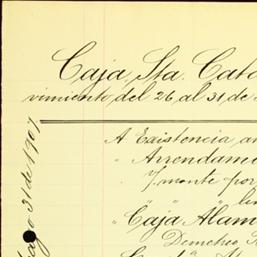 Caja, Sta. Cata
vimiento, del 26 al 31 de
A Existencia an
" Arrendamie
" Ymonte por
" "Caja" Alam
Demetrio R
31 de 1907